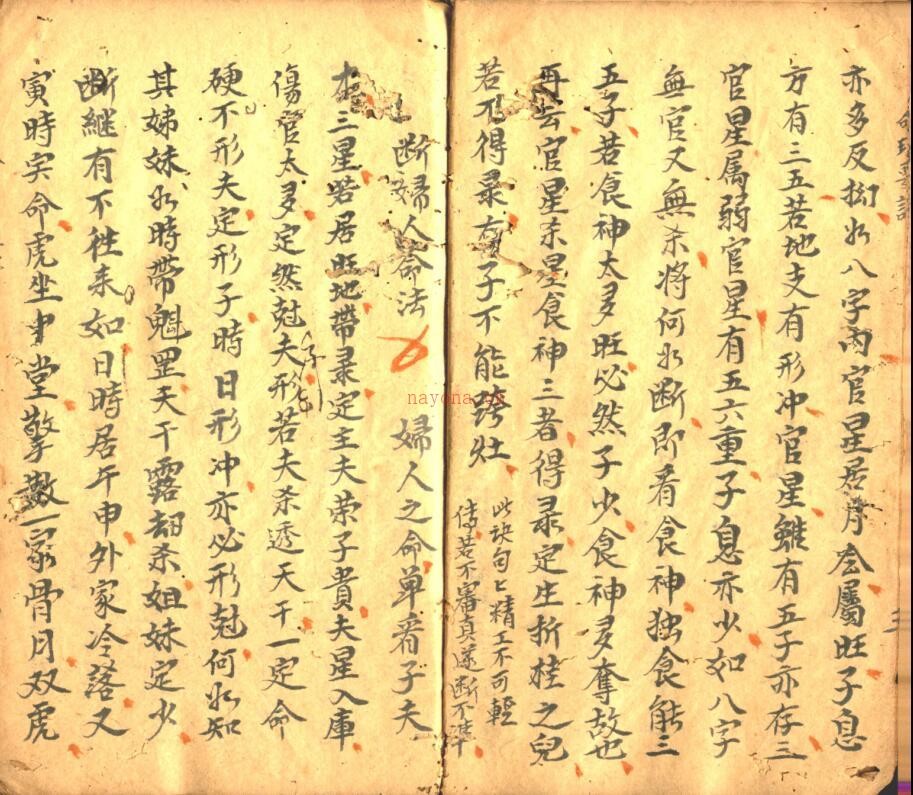 亦多反拗如八字內官星居月令屬旺子息
方有三五若地支有形冲官星雖有五子亦存三
官星属弱官星有五六重子息亦少如八字
無官又無杀將何如断即看食神独食能三
五子若食神太多旺必然子少食神多奪故也
再去官星杀星食神三者得录定生折桂之兒
若不得录有子不能跨灶
此訣句〻精工不可輕
傳若不審真遂断不準
断婦人命法 婦人之命单看子夫
三星若居旺地帶录定主夫荣子貴夫星入庫
傷官太多定然尅夫形子若夫杀透天干一定命
硬不形夫定形子時日形冲亦必形尅何如知
其姊妹如時帶魁罡天干露劫杀姐妹定少
断継有不徃来如日時居午申外家冷落又
寅時実命虎坐中堂擎数一家骨月双虎
nayona.cn